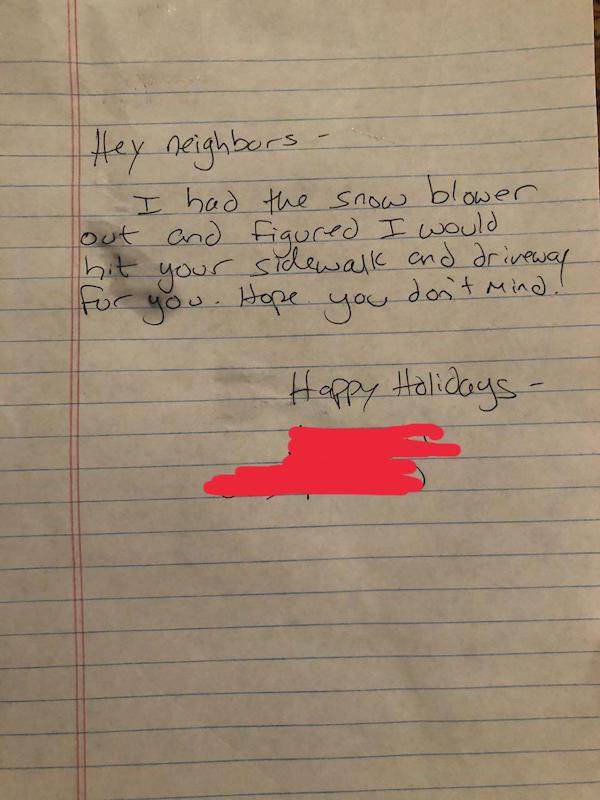 Hey neighbors -
I had the snow blower
out and figured I would
hit your sidewalk and driveway
for you. Hope you don't mind!
Happy Holidays -